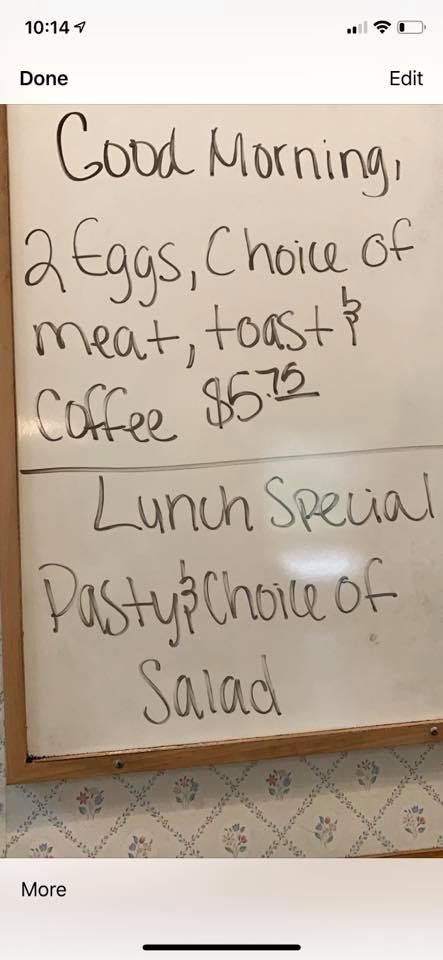 10:14
Done
Edit
Good Morning,
2 Eggs, Choice of
meat, toast &
Coffee $5.75
Lunch Special
Pasty & Choice of
Salad
More